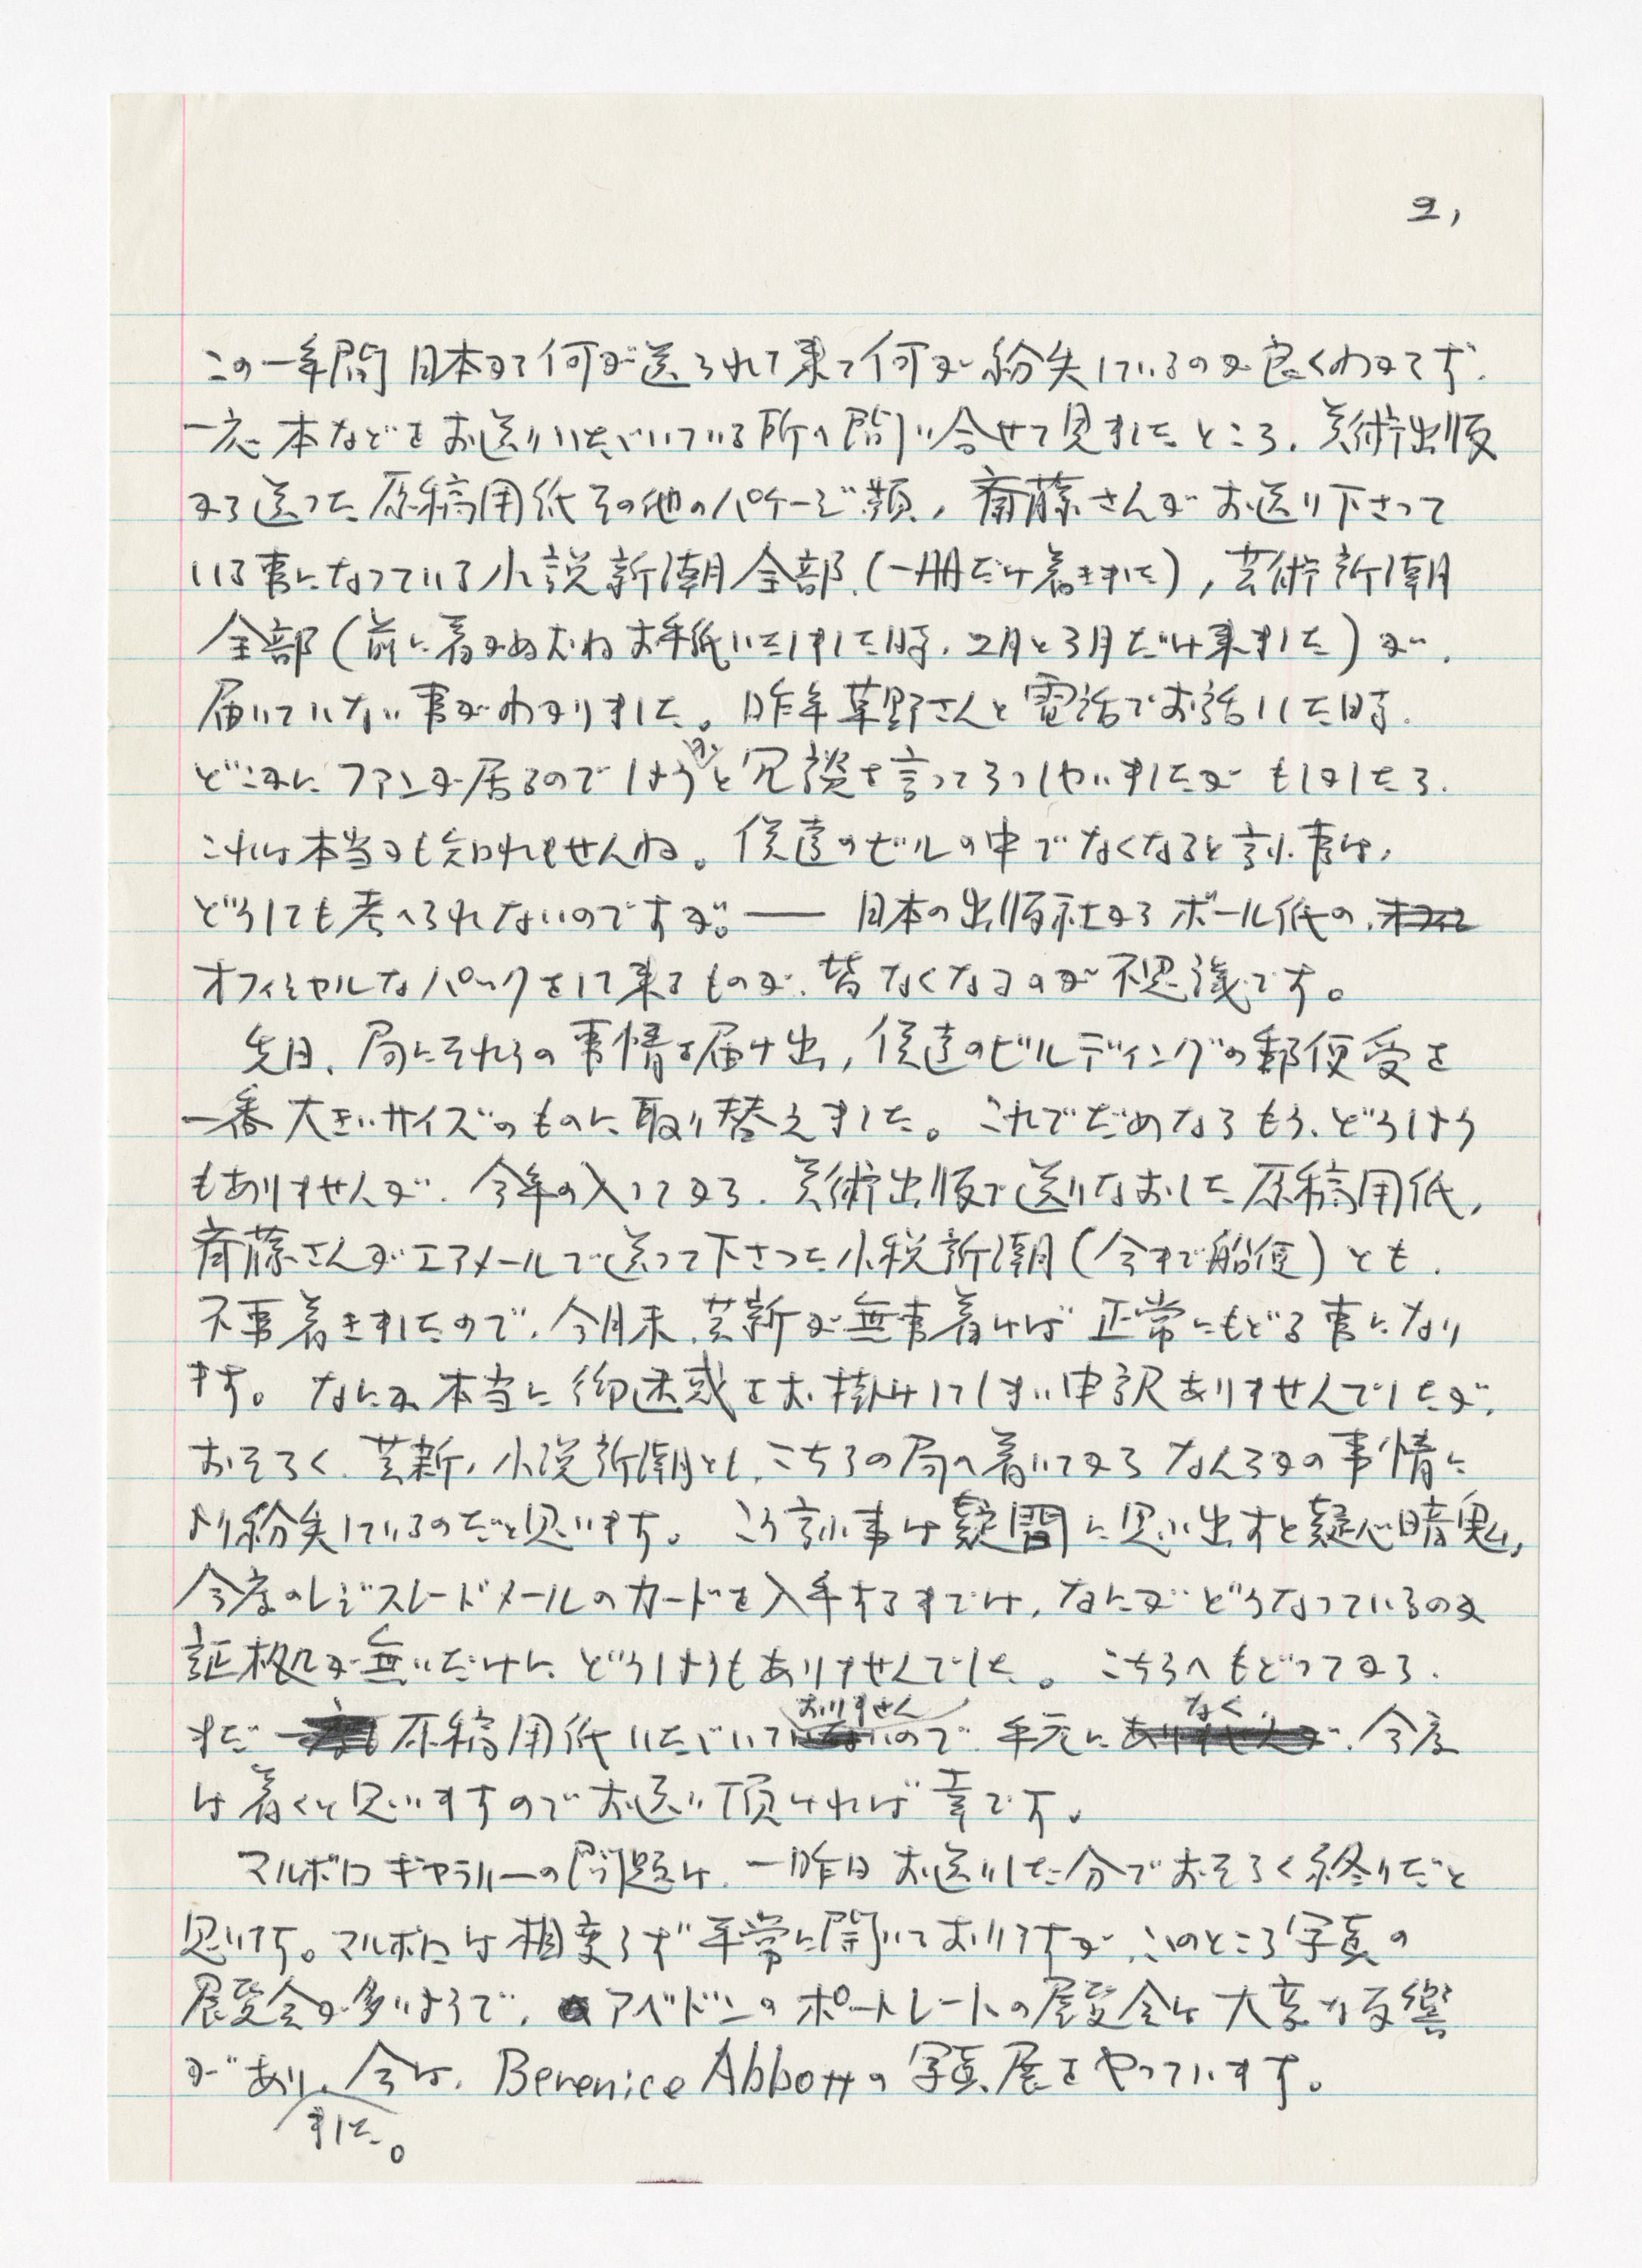 2,
この一年間 日本から何が送られて来て何が紛失しているのか良くわからず、
一応 本などをお送りいただいている所へ問い合せて見ましたところ、美術出版
から送った原稿用紙その他のパケージ類、斎藤さんが お送り下さって
いる事になっている小説新潮全部、(一冊だけ着きました)、芸術新潮
全部(前に着かぬむねお手紙いたしました時、2月と3月だけ来ました)が、
届いていない事がわかりました。昨年草野さんと電話でお話しした時、
どこかに ファンが居るのでしょうかと冗談を言ってらっしゃいましたが もしかしたら、
これは本当かも知れませんね。僕達のビルの中でなくなると言ふ事は、
どうしても考へられないのですが。―― 日本の出版社から ボール紙の
オフィシャルなパックをして来るものが、皆なくなるのが不思議です。
先日、局にそれらの事情を届け出、僕達のビルディングの郵便受を
一番大きいサイズのものに取り替えました。これでだめなら もう、どうしよう
もありませんが、今年の入ってから、美術出版で送りなおした原稿用紙、
斎藤さんがエアメールで送って下さった小税新潮(今まで船便)とも、
不事着きましたので、今月末、芸新が無事着けば 正常にもどる事になり
ます。なにか本当に御迷惑をお掛けしてしまい申訳ありませんでしたが、
おそらく、芸新、小説新潮とも、こちらの局へ着いてから なんらかの事情に
より紛失しているのだと思います。こう言ふ事は疑問に思ひ出すと疑心暗鬼、
今度のレジスレードメールのカードを入手するまでは、なにが どうなっているのか
証拠が無いだけに どうしようもありませんでした。こちらへもどってから、
まだ 原稿用紙いただいておりませんので 手元になく、今度
は着くと思いますのでお送り頂ければ幸です。
マルボロ ギャラリーの問題は、一昨日 お送りした分でおそらく終りだと
思います。マルボロは相変らず平常に開いておりますが、このところ写真の
展覧会が多いようで、アベドンのポートレートの展覧会は大変な反響
があり、ました。今は、Berenice Abbottの写真展をやっています。